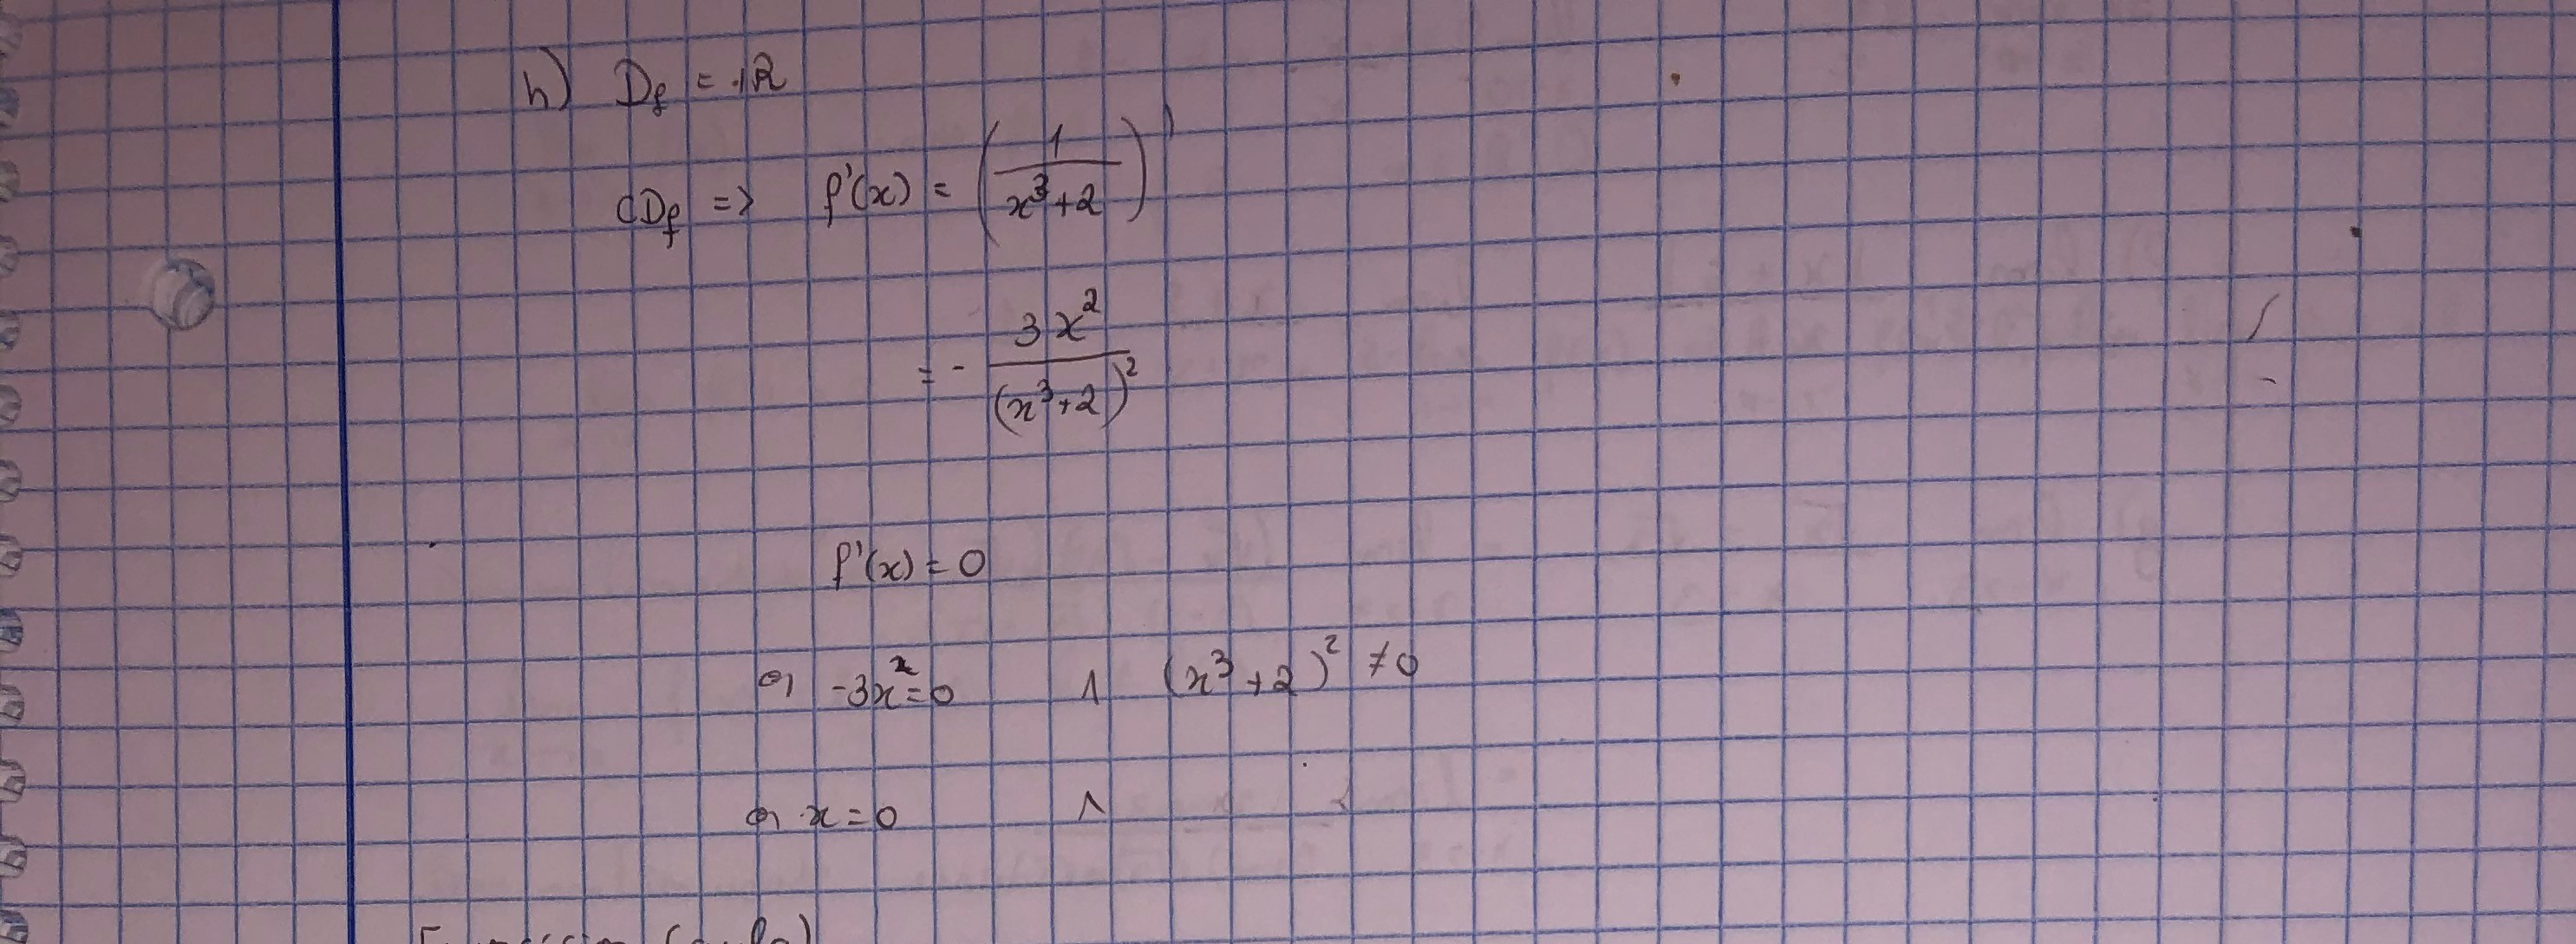 h) Df = ℝ
CDf => f'(x) = (1/(x³+2))'
= - 3x²/(x³+2)²
f'(x) = 0
⇔ -3x² = 0 ∧ (x³+2)² ≠ 0
⇔ x = 0 ∧